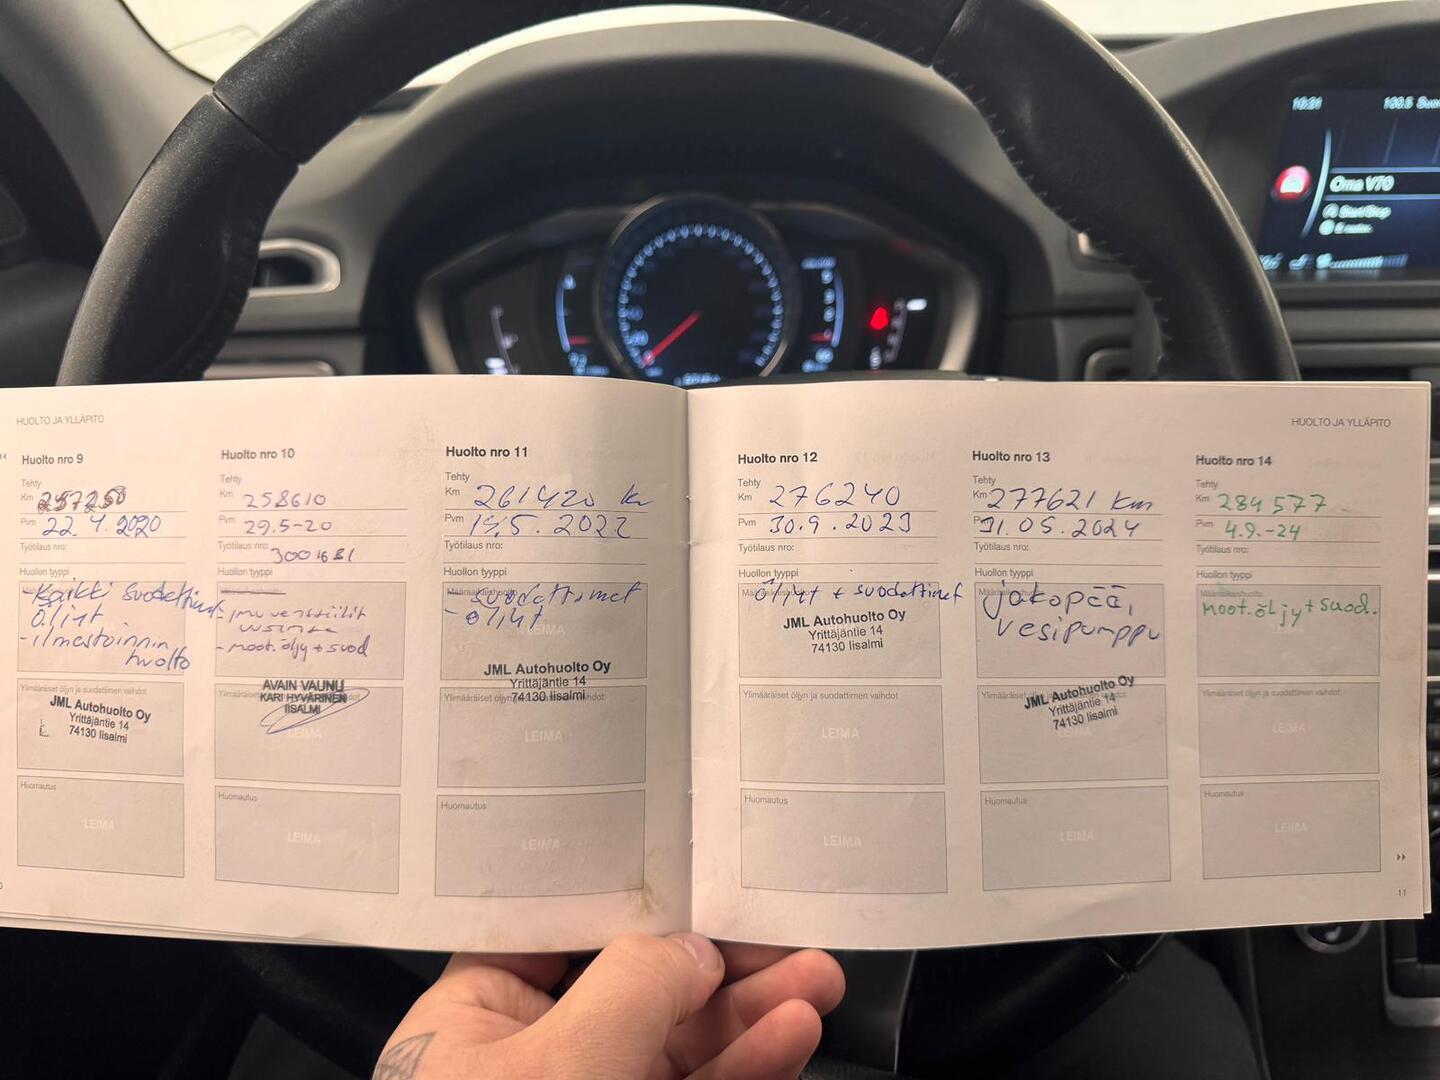 10:21
100.5
Oma V70
Start/Stop
HUOLTO JA YLLÄPITO
Huolto nro 9
Tehty
Km 257250
Pvm 22.4.2020
Työtilaus nro:
Huollon tyyppi
-Kaikki suodattimet
Öljyt
-ilmastoinnin
huolto
JML Autohuolto Oy
Yrittäjäntie 14
74130 Iisalmi
Huomautus
LEIMA
Huolto nro 10
Tehty
Km 258610
Pvm 29.5-20
Työtilaus nro:
Huollon tyyppi
-imuventtiilit
- moot.öljy + suod
AVAIN VAUNU
KARI HYVÄRINEN
IISALMI
LEIMA
Huomautus
LEIMA
Huolto nro 11
Tehty
Km 261420 km
Pvm 5.2022
Työtilaus nro:
Huollon tyyppi
- suodattimet
- öljyt
JML Autohuolto Oy
Yrittäjäntie 14
74130 Iisalmi
Ylimääräiset öljyn ja suodattimen vaihdot
LEIMA
Huomautus
LEIMA
HUOLTO JA YLLÄPITO
Huolto nro 12
Tehty
Km 276240
Pvm 30.9.2023
Työtilaus nro:
Huollon tyyppi
Öljyt + suodattimet
JML Autohuolto Oy
Yrittäjäntie 14
74130 Iisalmi
Ylimääräiset öljyn ja suodattimen vaihdot
LEIMA
Huomautus
LEIMA
Huolto nro 13
Tehty
Km 277621 km
Pvm 31.05.2024
Työtilaus nro:
Huollon tyyppi
Jakopää,
vesipumppu
JML Autohuolto Oy
Yrittäjäntie 14
74130 Iisalmi
Huomautus
LEIMA
Huolto nro 14
Tehty
Km 284577
Pvm 4.9.-24
Työtilaus nro:
Huollon tyyppi
Määräaikaishuolto
moot.öljy + suod.
Ylimääräiset öljyn ja suodattimen vaihdot
LEIMA
Huomautus
LEIMA
11